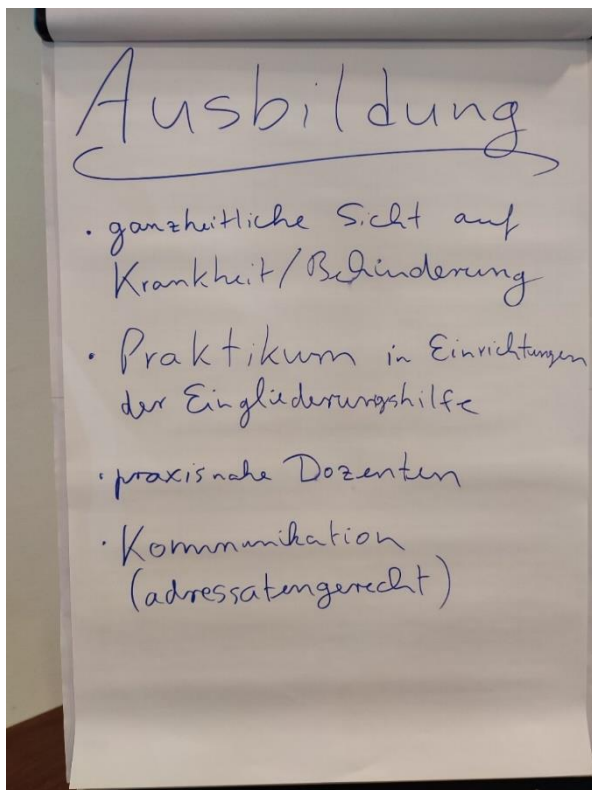 Ausbildung
· ganzheitliche Sicht auf
Krankheit/Behinderung
· Praktikum in Einrichtungen
der Eingliederungshilfe
· praxisnahe Dozenten
· Kommunikation
(adressatengerecht)